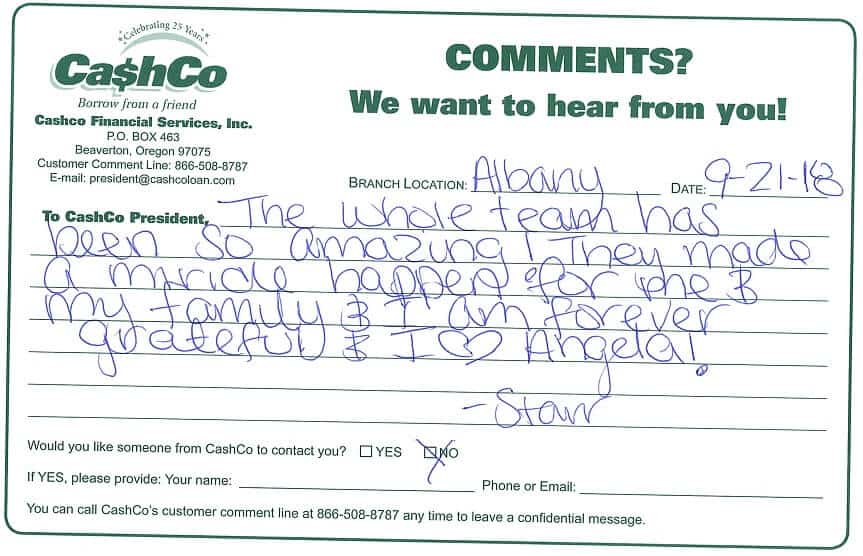 Celebrating 25 Years
Ca$hCo
Borrow from a friend
Cashco Financial Services, Inc.
P.O. BOX 463
Beaverton, Oregon 97075
Customer Comment Line: 866-508-8787
E-mail: president@cashcoloan.com
COMMENTS?
We want to hear from you!
BRANCH LOCATION: Albany DATE: 9-21-18
To CashCo President, The whole team has
been so amazing! They made
a miricle happen for me &
my family & I am forever
grateful & I ♡ Angela!
- Starr
Would you like someone from CashCo to contact you? ☐ YES ☒ NO
If YES, please provide: Your name: Phone or Email:
You can call CashCo's customer comment line at 866-508-8787 any time to leave a confidential message.